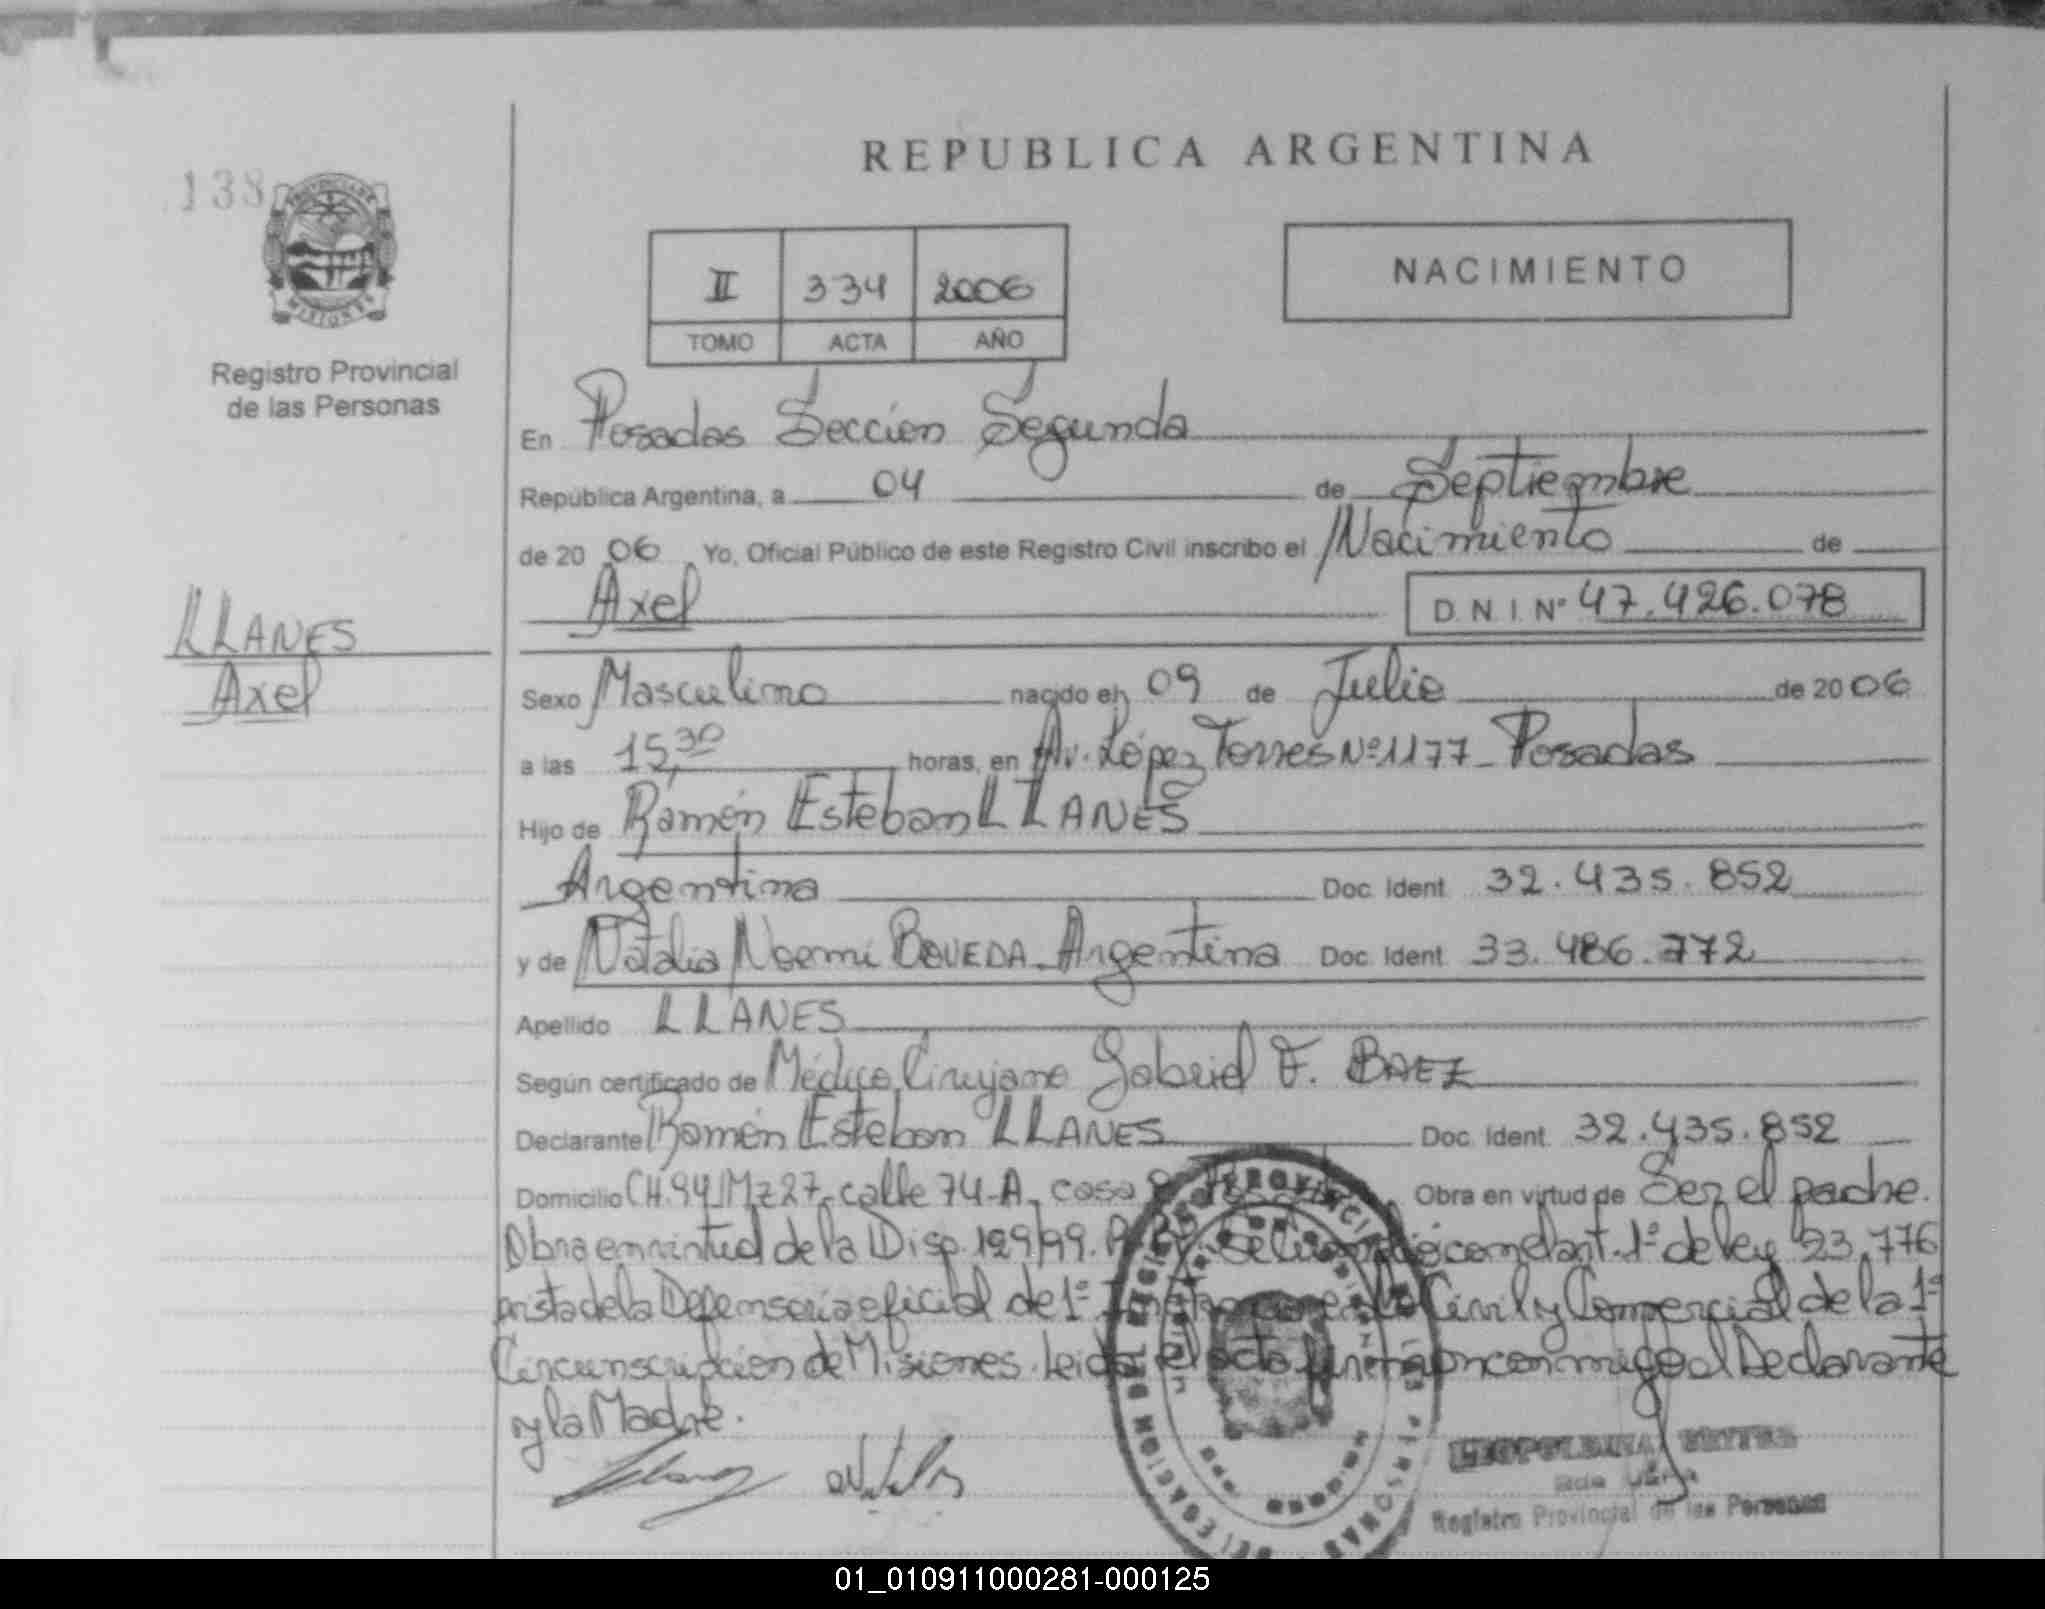 REPUBLICA ARGENTINA
138
PROVINCIA DE
MISIONES
Registro Provincial
de las Personas
II 334 2006
TOMO ACTA AÑO
NACIMIENTO
En Posadas Sección Segunda
República Argentina, a 04 de Septiembre
de 20 06 Yo, Oficial Público de este Registro Civil inscribo el Nacimiento de
Axel D. N. I. Nº 47.426.078
LLANES
Axel
Sexo Masculino nacido en 09 de Julio de 20 06
a las 15,30 horas, en Av. López Torres Nº 1177 - Posadas
Hijo de Ramón Esteban LLANES
Argentina Doc. Ident. 32.435.852
y de Natalia Noemi BOVEDA Argentina Doc. Ident. 33.486.772
Apellido LLANES
Según certificado de Médico Cirujano Gabriel F. BAEZ
Declarante Ramón Esteban LLANES Doc. Ident. 32.435.852
Domicilio CH.94 Mz 27, calle 74-A, casa Obra en virtud de Ser el padre.
Obra en virtud de la Disp. 129/99. con el art. 1º de ley 23.776
vista de la Defensoría oficial de 1º Civil y Comercial de la 1º
Circunscripcion de Misiones. Leida el acta firman conmigo el Declarante
y la Madre.
Registro Provincial de las Personas
01_010911000281-000125